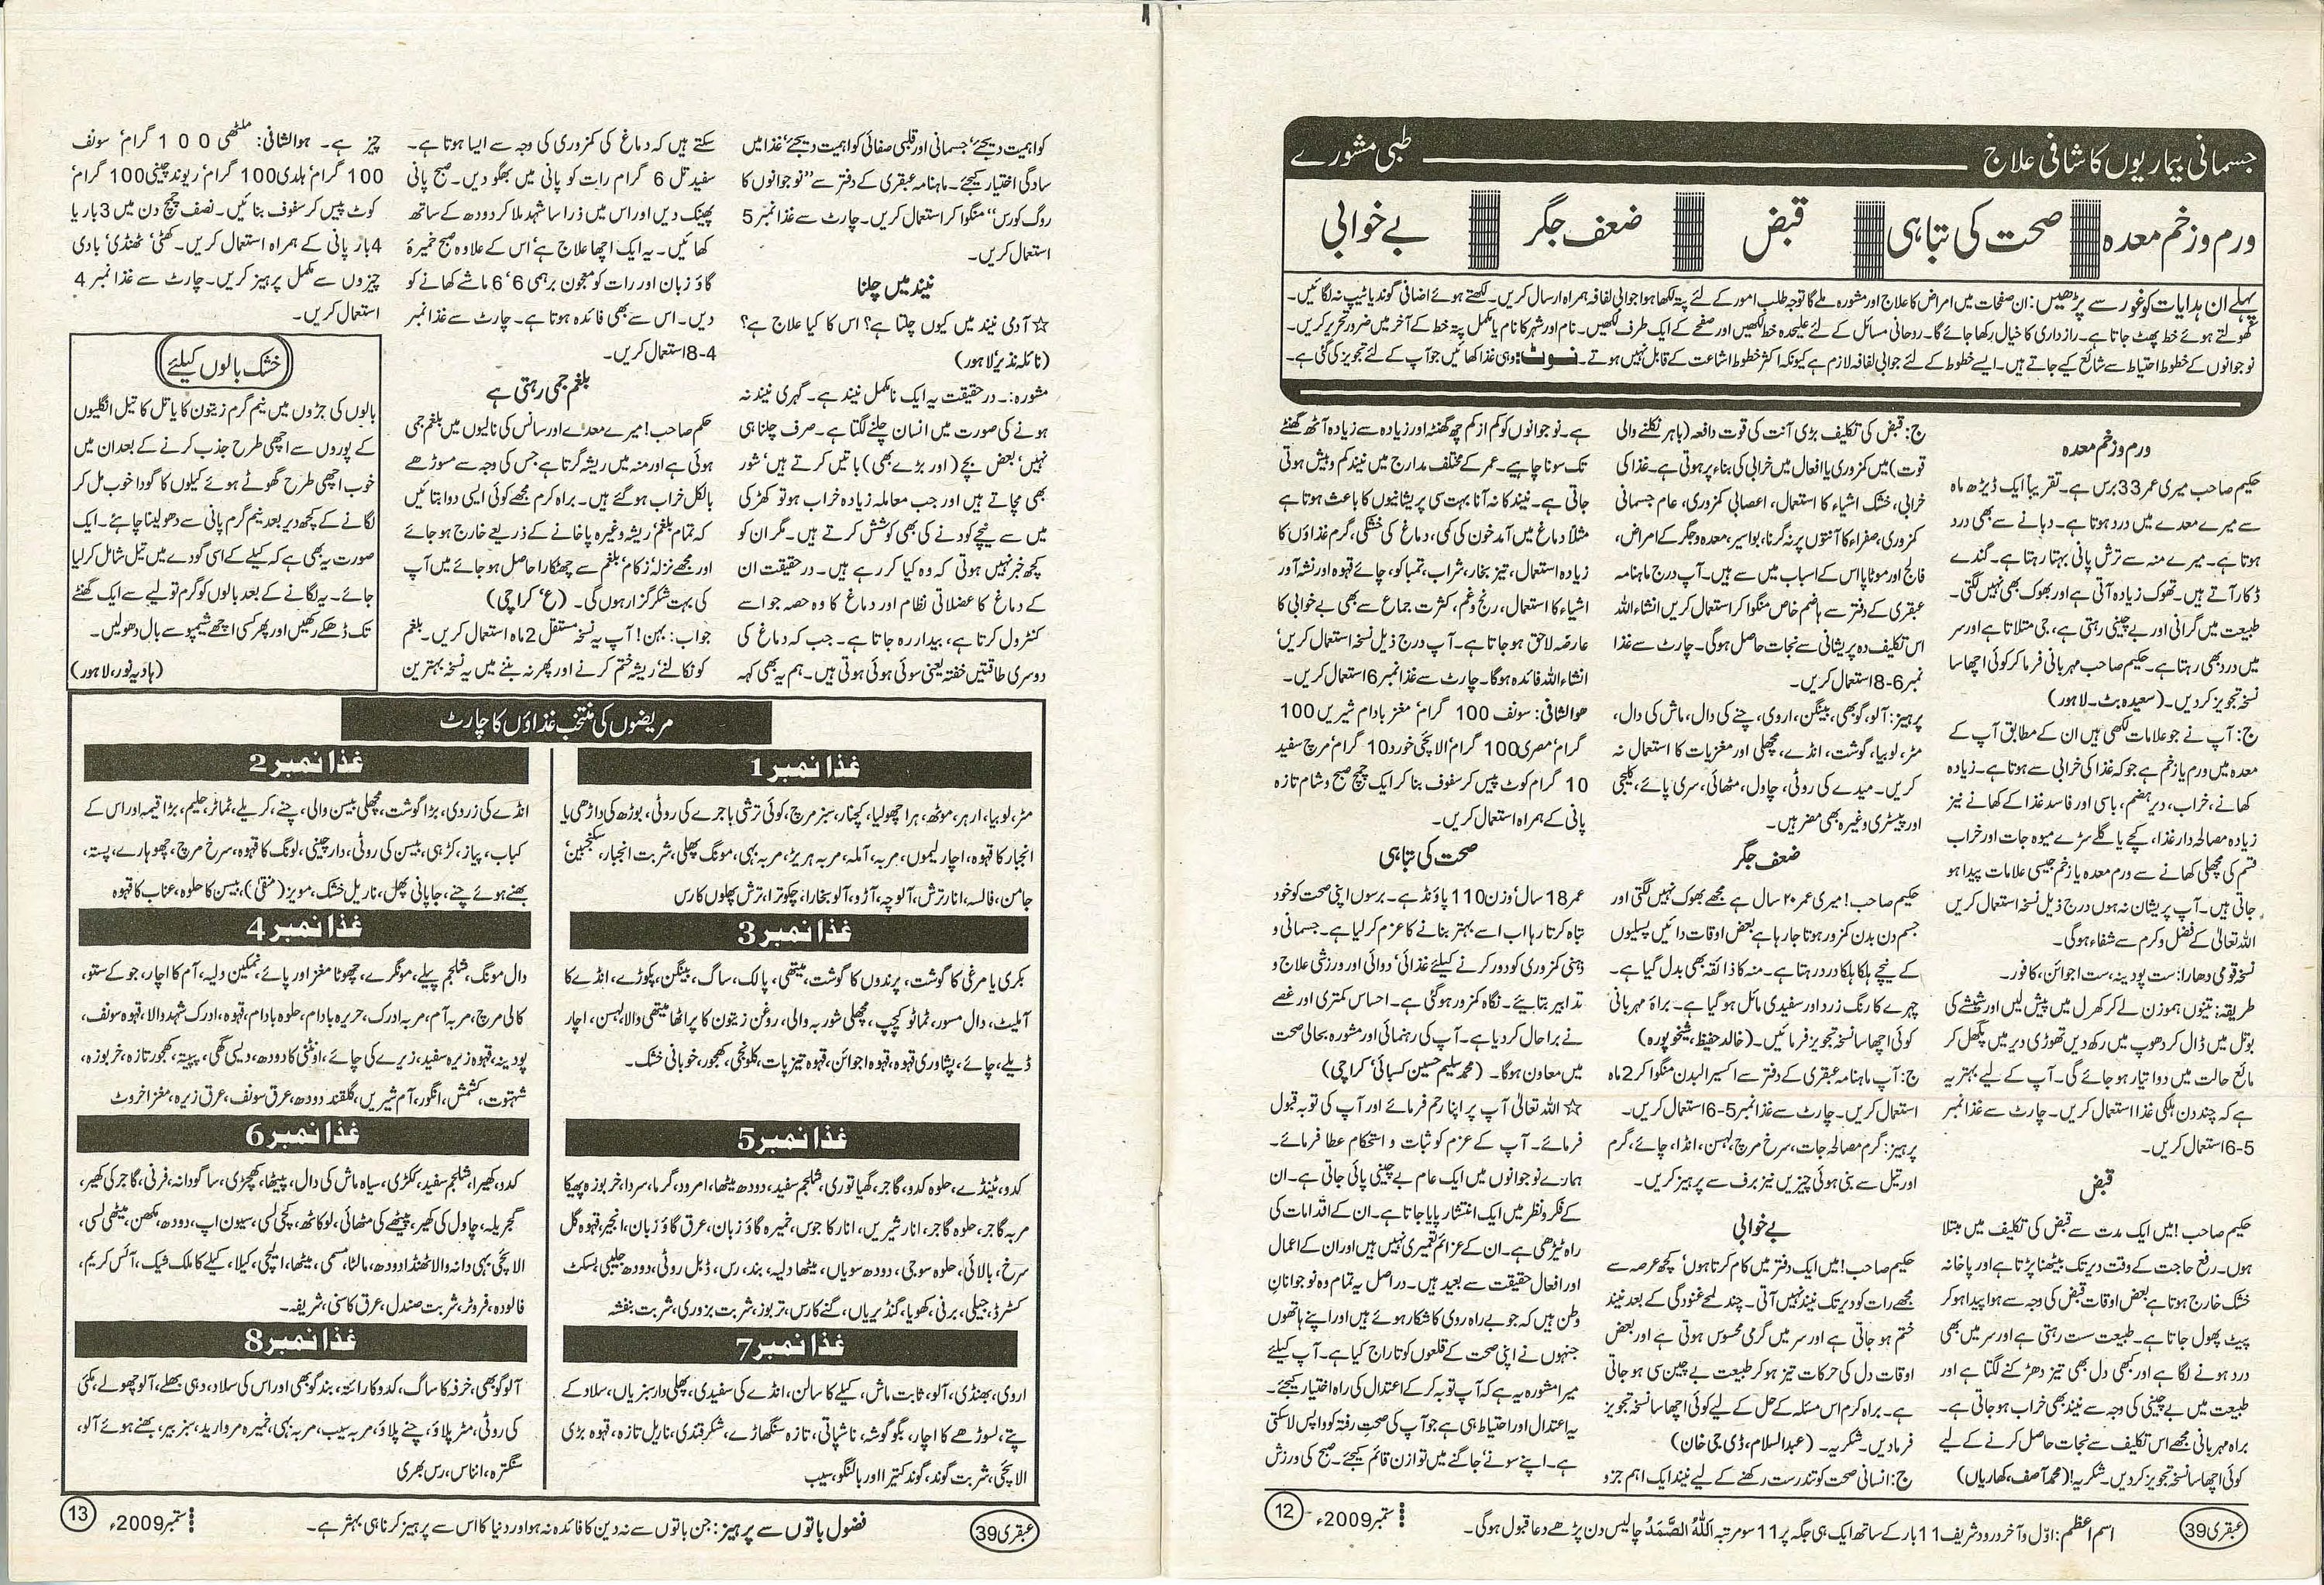 جسمانی بیماریوں کا شافی علاج
طبی مشورے
ورم و زخم معدہ
صحت کی تباہی
قبض
ضعف جگر
بے خوابی
پہلے ان ہدایات کو غور سے پڑھیں: ان صفحات میں امراض کا علاج اور مشورہ ملے گا توجہ طلب امور کے لئے پتہ لکھا ہوا جوابی لفافہ ہمراہ ارسال کریں۔ لکھتے ہوئے اضافی گوند یا ٹیپ نہ لگائیں۔
کھولتے ہوئے خط پھٹ جاتا ہے۔ رازداری کا خیال رکھا جائے گا۔ روحانی مسائل کے لئے علیحدہ خط لکھیں اور صفحے کے ایک طرف لکھیں۔ نام اور شہر کا نام یا مکمل پتہ خط کے آخر میں ضرور تحریر کریں۔
نوجوانوں کے خطوط احتیاط سے شائع کیے جاتے ہیں۔ ایسے خطوط کے لئے جوابی لفافہ لازم ہے کیونکہ اکثر خطوط اشاعت کے قابل نہیں ہوتے۔ نوٹ: وہی غذا کھائیں جو آپ کے لئے تجویز کی گئی ہے۔
ورم و زخم معدہ
حکیم صاحب میری عمر 33 برس ہے۔ تقریباً ایک ڈیڑھ ماہ
سے میرے معدے میں درد ہوتا ہے۔ دبانے سے بھی درد
ہوتا ہے۔ میرے منہ سے ترش پانی بہتا رہتا ہے۔ گندے
ڈکار آتے ہیں۔ تھوک زیادہ آتی ہے اور بھوک بھی نہیں لگتی۔
طبیعت میں گرانی اور بے چینی رہتی ہے، جی متلاتا ہے اور سر
میں درد بھی رہتا ہے۔ حکیم صاحب مہربانی فرما کر کوئی اچھا سا
نسخہ تجویز کر دیں۔ (سعیدہ بٹ۔ لاہور)
ج: آپ نے جو علامات لکھی ہیں ان کے مطابق آپ کے
معدہ میں ورم یا زخم ہے جو کہ غذا کی خرابی سے ہوتا ہے۔ زیادہ
کھانے، خراب، دیر ہضم، باسی اور فاسد غذا کے کھانے نیز
زیادہ مصالحہ دار غذا، کچے یا گلے سڑے میوہ جات اور خراب
قسم کی مچھلی کھانے سے ورم معدہ یا زخم جیسی علامات پیدا ہو
جاتی ہیں۔ آپ پریشان نہ ہوں درج ذیل نسخہ استعمال کریں
اللہ تعالیٰ کے فضل و کرم سے شفاء ہوگی۔
نسخہ قومی دھارا: ست پودینہ، ست اجوائن، کافور۔
طریقہ: تینوں ہموزن لے کر کھرل میں پیش لیں اور شیشے کی
بوتل میں ڈال کر دھوپ میں رکھ دیں تھوڑی دیر میں پگھل کر
مائع حالت میں دوا تیار ہو جائے گی۔ آپ کے لیے بہتر یہ
ہے کہ چند دن ہلکی غذا استعمال کریں۔ چارٹ سے غذا نمبر
5-6 استعمال کریں۔
قبض
حکیم صاحب! میں ایک مدت سے قبض کی تکلیف میں مبتلا
ہوں۔ رفع حاجت کے وقت دیر تک بیٹھنا پڑتا ہے اور پاخانہ
خشک خارج ہوتا ہے بعض اوقات قبض کی وجہ سے ہوا پیدا ہو کر
پیٹ پھول جاتا ہے۔ طبیعت ست رہتی ہے اور سر میں بھی
درد ہونے لگا ہے اور کبھی دل بھی تیز دھڑکنے لگتا ہے اور
طبیعت میں بے چینی کی وجہ سے نیند بھی خراب ہو جاتی ہے۔
براہ مہربانی مجھے اس تکلیف سے نجات حاصل کرنے کے لیے
کوئی اچھا سا نسخہ تجویز کر دیں۔ شکریہ! (محمد آصف، کھاریاں)
ج: قبض کی تکلیف بڑی آنت کی قوت دافعہ (باہر نکلنے والی
قوت) میں کمزوری یا افعال میں خرابی کی بناء پر ہوتی ہے۔ غذا کی
خرابی، خشک اشیاء کا استعمال، اعصابی کمزوری، عام جسمانی
کمزوری، صفراء کا آنتوں پر نہ گرنا، بواسیر، معدہ و جگر کے امراض،
فالج اور موٹاپا اس کے اسباب میں سے ہیں۔ آپ درج ماہنامہ
عبقری کے دفتر سے ہاضم خاص منگوا کر استعمال کریں انشاء اللہ
اس تکلیف دہ پریشانی سے نجات حاصل ہوگی۔ چارٹ سے غذا
نمبر 6-8 استعمال کریں۔
پرہیز: آلو، گوبھی، بینگن، اروی، چنے کی دال، ماش کی دال،
مٹر، لوبیا، گوشت، انڈے، مچھلی اور مغزیات کا استعمال نہ
کریں۔ میدے کی روٹی، چاول، مٹھائی، سری پائے، کلیجی
اور پیسٹری وغیرہ بھی مضر ہیں۔
ضعف جگر
حکیم صاحب! میری عمر ۲۰ سال ہے مجھے بھوک نہیں لگتی اور
جسم دن بدن کمزور ہوتا جا رہا ہے بعض اوقات دائیں پسلیوں
کے نیچے ہلکا ہلکا درد رہتا ہے۔ منہ کا ذائقہ بھی بدل گیا ہے۔
چہرے کا رنگ زرد اور سفیدی مائل ہو گیا ہے۔ براہ مہربانی
کوئی اچھا سا نسخہ تجویز فرمائیں۔ (خالد حفیظ، شیخوپورہ)
ج: آپ ماہنامہ عبقری کے دفتر سے اکسیر البدن منگوا کر 2 ماہ
استعمال کریں۔ چارٹ سے غذا نمبر 5-6 استعمال کریں۔
پرہیز: گرم مصالحہ جات، سرخ مرچ، لہسن، انڈا، چائے، گرم
اور تیل سے بنی ہوئی چیزیں نیز برف سے پرہیز کریں۔
بے خوابی
حکیم صاحب! میں ایک دفتر میں کام کرتا ہوں، کچھ عرصہ سے
مجھے رات کو دیر تک نیند نہیں آتی۔ چند لمحے غنودگی کے بعد نیند
ختم ہو جاتی ہے اور سر میں گرمی محسوس ہوتی ہے اور بعض
اوقات دل کی حرکات تیز ہو کر طبیعت بے چین سی ہو جاتی
ہے۔ براہ کرم اس مسئلہ کے حل کے لیے کوئی اچھا سا نسخہ تجویز
فرما دیں۔ شکریہ۔ (عبدالسلام، ڈی جی خان)
ج: انسانی صحت کو تندرست رکھنے کے لیے نیند ایک اہم جزو
ہے۔ نوجوانوں کو کم از کم چھ گھنٹہ اور زیادہ سے زیادہ آٹھ گھنٹے
تک سونا چاہیے۔ عمر کے مختلف مدارج میں نیند کم و بیش ہوتی
جاتی ہے۔ نیند کا نہ آنا بہت سی پریشانیوں کا باعث ہوتا ہے
مثلاً دماغ میں آمد خون کی کمی، دماغ کی خشکی، گرم غذاؤں کا
زیادہ استعمال، تیز بخار، شراب، تمباکو، چائے قہوہ اور نشہ آور
اشیاء کا استعمال، رنج و غم، کثرت جماع سے بھی بے خوابی کا
عارضہ لاحق ہو جاتا ہے۔ آپ درج ذیل نسخہ استعمال کریں
انشاء اللہ فائدہ ہوگا۔ چارٹ سے غذا نمبر 6 استعمال کریں۔
ھوالشافی: سونف 100 گرام، مغز بادام شیریں 100
گرام، مصری 100 گرام، الائچی خورد 10 گرام، مرچ سفید
10 گرام کوٹ پیس کر سفوف بنا کر ایک چمچ صبح و شام تازہ
پانی کے ہمراہ استعمال کریں۔
صحت کی تباہی
عمر 18 سال، وزن 110 پاؤنڈ ہے۔ برسوں اپنی صحت کو خود
تباہ کرتا رہا اب اسے بہتر بنانے کا عزم کر لیا ہے۔ جسمانی و
ذہنی کمزوری کو دور کرنے کیلئے غذائی، دوائی اور ورزشی علاج و
تدابیر بتائیے۔ نگاہ کمزور ہوگئی ہے۔ احساس کمتری اور غصے
نے برا حال کر دیا ہے۔ آپ کی رہنمائی اور مشورہ بحالی صحت
میں معاون ہوگا۔ (محمد سلیم حسین کسبائی، کراچی)
☆ اللہ تعالیٰ آپ پر اپنا رحم فرمائے اور آپ کی توبہ قبول
فرمائے۔ آپ کے عزم کو ثبات و استحکام عطا فرمائے۔
ہمارے نوجوانوں میں ایک عام بے چینی پائی جاتی ہے۔ ان
کے فکر و نظر میں ایک انتشار پایا جاتا ہے۔ ان کے اقدامات کی
راہ ٹیڑھی ہے۔ ان کے عزائم تعمیری نہیں ہیں اور ان کے اعمال
اور افعال حقیقت سے بعید ہیں۔ دراصل یہ تمام وہ نوجوانان
وطن ہیں کہ جو بے راہ روی کا شکار ہوئے ہیں اور اپنے ہاتھوں
جنہوں نے اپنی صحت کے قلعوں کو تاراج کیا ہے۔ آپ کیلئے
میرا مشورہ یہ ہے کہ آپ توبہ کر کے اعتدال کی راہ اختیار کیجئے۔
یہ اعتدال اور احتیاط ہی ہے جو آپ کی صحت رفتہ کو واپس لا سکتی
ہے۔ اپنے سونے جاگنے میں توازن قائم کیجئے۔ صبح کی ورزش
عبقری 39
اسم اعظم: اوّل و آخر درود شریف 11 بار کے ساتھ ایک ہی جگہ پر 11 سو مرتبہ اَللّٰهُ الصَّمَدُ چالیس دن پڑھے دعا قبول ہوگی۔
ستمبر 2009ء
12
کو اہمیت دیجئے، جسمانی اور قلبی صفائی کو اہمیت دیجئے، غذا میں
سادگی اختیار کیجئے۔ ماہنامہ عبقری کے دفتر سے "نوجوانوں کا
روگ کورس" منگوا کر استعمال کریں۔ چارٹ سے غذا نمبر 5
استعمال کریں۔
نیند میں چلنا
☆ آدمی نیند میں کیوں چلتا ہے؟ اس کا کیا علاج ہے؟
(نائلہ نذیر، لاہور)
مشورہ:۔ درحقیقت یہ ایک نامکمل نیند ہے۔ گہری نیند نہ
ہونے کی صورت میں انسان چلنے لگتا ہے۔ صرف چلنا ہی
نہیں، بعض بچے (اور بڑے بھی) باتیں کرتے ہیں، شور
بھی مچاتے ہیں اور جب معاملہ زیادہ خراب ہو تو کھڑکی
میں سے نیچے کودنے کی بھی کوشش کرتے ہیں۔ مگر ان کو
کچھ خبر نہیں ہوتی کہ وہ کیا کر رہے ہیں۔ درحقیقت ان
کے دماغ کا عضلاتی نظام اور دماغ کا وہ حصہ جو اسے
کنٹرول کرتا ہے، بیدار رہ جاتا ہے۔ جب کہ دماغ کی
دوسری طاقتیں خفتہ یعنی سوئی ہوئی ہوتی ہیں۔ ہم یہ بھی کہہ
سکتے ہیں کہ دماغ کی کمزوری کی وجہ سے ایسا ہوتا ہے۔
سفید تل 6 گرام رات کو پانی میں بھگو دیں۔ صبح پانی
پھینک دیں اور اس میں ذرا سا شہد ملا کر دودھ کے ساتھ
کھائیں۔ یہ ایک اچھا علاج ہے، اس کے علاوہ صبح خمیرہ
گاؤ زبان اور رات کو معجون برہمی 6'6 ماشے کھانے کو
دیں۔ اس سے بھی فائدہ ہوتا ہے۔ چارٹ سے غذا نمبر
4-8 استعمال کریں۔
بلغم جمی رہتی ہے
حکم صاحب! میرے معدے اور سانس کی نالیوں میں بلغم جمی
ہوئی ہے اور منہ میں ریشہ گرتا ہے جس کی وجہ سے مسوڑھے
بالکل خراب ہو گئے ہیں۔ براہ کرم مجھے کوئی ایسی دوا بتائیں
کہ تمام بلغم، ریشہ وغیرہ پاخانے کے ذریعے خارج ہو جائے
اور مجھے نزلہ، زکام، بلغم سے چھٹکارا حاصل ہو جائے میں آپ
کی بہت شکر گزار ہوں گی۔ (ع، کراچی)
جواب: بہن! آپ یہ نسخہ مستقل 2 ماہ استعمال کریں۔ بلغم
کو نکالنے، ریشہ ختم کرنے اور پھر نہ بننے میں یہ نسخہ بہترین
چیز ہے۔ ہوالشافی: ملٹھی 100 گرام، سونف
100 گرام، ہلدی 100 گرام، ریوند چینی 100 گرام،
کوٹ پیس کر سفوف بنائیں۔ نصف چمچ دن میں 3 بار یا
4 بار پانی کے ہمراہ استعمال کریں۔ کھٹی، ٹھنڈی، بادی
چیزوں سے مکمل پرہیز کریں۔ چارٹ سے غذا نمبر 4
استعمال کریں۔
خشک بالوں کیلئے
بالوں کی جڑوں میں نیم گرم زیتون کا یا تل کا تیل انگلیوں
کے پوروں سے اچھی طرح جذب کرنے کے بعد ان میں
خوب اچھی طرح گھوٹے ہوئے کیلوں کا گودا خوب مل کر
لگانے کے کچھ دیر بعد نیم گرم پانی سے دھو لینا چاہئے۔ ایک
صورت یہ بھی ہے کہ کیلے کے اسی گودے میں تیل شامل کر لیا
جائے۔ یہ لگانے کے بعد بالوں کو گرم تولیے سے ایک گھنٹے
تک ڈھکے رکھیں اور پھر کسی اچھے شیمپو سے بال دھولیں۔
(ہادیہ نور، لاہور)
مریضوں کی منتخب غذاؤں کا چارٹ
غذا نمبر 1
مٹر، لوبیا، ارہر، موٹھ، ہرا چھولیا، کچنار، سبز مرچ، کوئی ترشی باجرے کی روٹی، بوڑھ کی داڑھی یا
انجبار کا قہوہ، اچار لیموں، مربہ، آملہ، مربہ ہریڑ، مربہ بہی، مونگ پھلی، شربت انجبار، سکنجبین
جامن، فالسہ، انار ترش، آلوچہ، آڑو، آلو بخارا، چکوترا، ترش پھلوں کا رس
غذا نمبر 2
انڈے کی زردی، بڑا گوشت، مچھلی بیسن والی، چنے، کریلے، ٹماٹر، حلیم، بڑا قیمہ اور اس کے
کباب، پیاز، کڑہی، بیسن کی روٹی، دارچینی، لونگ کا قہوہ، سرخ مرچ، چھوہارے، پستہ،
بھنے ہوئے چنے، جاپانی پھل، ناریل خشک، مویز (منقی)، بیسن کا حلوہ، عناب کا قہوہ
غذا نمبر 3
بکری یا مرغی کا گوشت، پرندوں کا گوشت، میتھی، پالک، ساگ، بینگن، پکوڑے، انڈے کا
آملیٹ، دال مسور، ٹماٹو کیچپ، مچھلی شوربہ والی، روغن زیتون کا پراٹھا میتھی والا، لہسن، اچار
ڈیلے، چائے، پشاوری قہوہ، قہوہ اجوائن، قہوہ تیز پات، کلونجی، کھجور، خوبانی خشک۔
غذا نمبر 4
دال مونگ، شلجم پیلے، مونگرے، چھوٹا مغز اور پائے، نمکین دلیہ، آم کا اچار، جو کے ستو،
کالی مرچ، مربہ آم، مربہ ادرک، حریرہ بادام، حلوہ بادام، قہوہ، ادرک شہد والا، قہوہ سونف،
پودینہ، قہوہ زیرہ سفید، زیرے کی چائے، اونٹنی کا دودھ، دیسی گھی، پپیتہ، کھجور تازہ، خربوزہ،
شہتوت، کشمش، انگور، آم شیریں، گلقند دودھ، عرق سونف، عرق زیرہ، مغز اخروٹ
غذا نمبر 5
کدو، ٹینڈے، حلوہ کدو، گاجر، گھیا توری، شلجم سفید، دودھ میٹھا، امرود، گرما، سردا، خربوزہ پھیکا
مربہ گاجر، حلوہ گاجر، انار شیریں، انار کا جوس، خمیرہ گاؤ زبان، عرق گاؤ زبان، انجیر، قہوہ گل
سرخ، بالائی، حلوہ سوجی، دودھ سویاں، میٹھا دلیہ، بند، رس، ڈبل روٹی، دودھ جلیبی، بسکٹ
کسٹرڈ، جیلی، برفی، کھویا، گنڈیریاں، گنے کا رس، تربوز، شربت بزوری، شربت بنفشہ
غذا نمبر 6
کدو، کھیرا، شلجم سفید، ککڑی، سیاہ ماش کی دال، پیٹھا، کھچڑی، ساگودانہ، فرنی، گاجر کی کھیر،
گجریلہ، چاول کی کھیر، پیٹھے کی مٹھائی، لوکاٹھ، کچی لسی، سیون اپ، دودھ، مکھن، میٹھی لسی،
الائچی بہی دانہ والا ٹھنڈا دودھ، مالٹا، مسمی، میٹھا، الیچی، کیلا، کیلے کا ملک شیک، آئس کریم،
فالودہ، فروٹر، شربت صندل، عرق کاسنی، شریفہ۔
غذا نمبر 7
اروی، بھنڈی، آلو، ثابت ماش، کیلے کا سالن، انڈے کی سفیدی، پھلی دار سبزیاں، سلاد کے
پتے، لسوڑھے کا اچار، بگو گوشہ، ناشپاتی، تازہ سنگھاڑے، شکر قندی، ناریل تازہ، قہوہ بڑی
الائچی، شربت گوند، گوند کتیرا اور بالنگو، سیب
غذا نمبر 8
آلو گوبھی، خرفہ کا ساگ، کدو کا رائتہ، بند گوبھی اور اس کی سلاد، دہی بھلے، آلو چھولے، مکئی
کی روٹی، مٹر پلاؤ، چنے پلاؤ، مربہ سیب، مربہ بہی، خمیرہ مروارید، سبز بیر، بھنے ہوئے آلو،
سنگترہ، انناس، رس بھری
عبقری 39
فضول باتوں سے پرہیز: جن باتوں سے نہ دین کا فائدہ نہ ہو اور دنیا کا اس سے پرہیز کرنا ہی بہتر ہے۔
ستمبر 2009ء
13